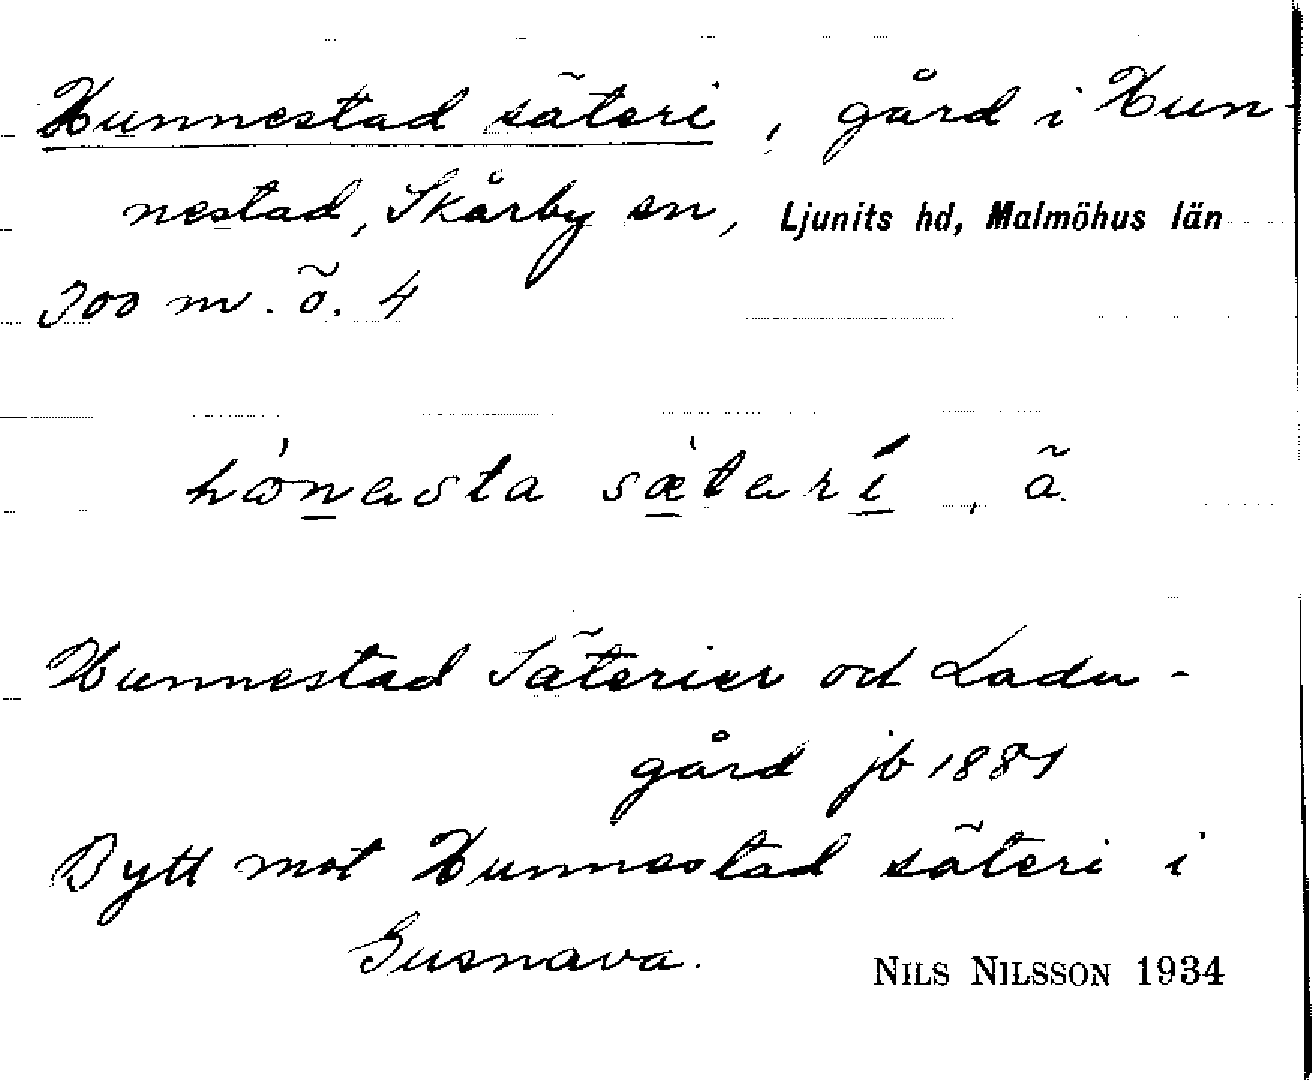 Hunnestad säteri, gård i Hun-
nestad, Skårby sn, Ljunits hd, Malmöhus län
300 m. ö. 4
hònasta sæ̀tarí, ã
Hunnestad Säterier och Ladu-
gård jb 1881
Bytt mot Hunnestad säteri i
Gusnava.
NILS NILSSON 1934